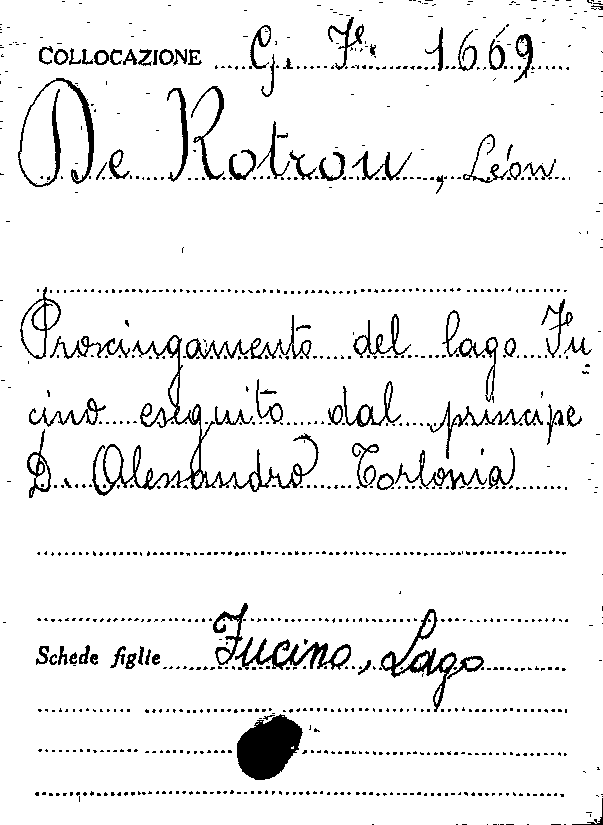 COLLOCAZIONE G. F. 1669
De Rotrou, Léon
Prosciugamento del lago Fu-
cino eseguito dal principe
D. Alessandro Torlonia
Schede figlie Fucino, Lago